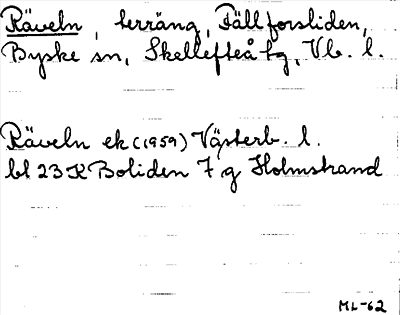 Räveln, terräng, Fällforsliden,
Byske sn, Skellefteå tg, Vb. l.
Räveln ek (1959) Västerb. l.
bl 23 K Boliden 7 g Holmstrand
ML-62